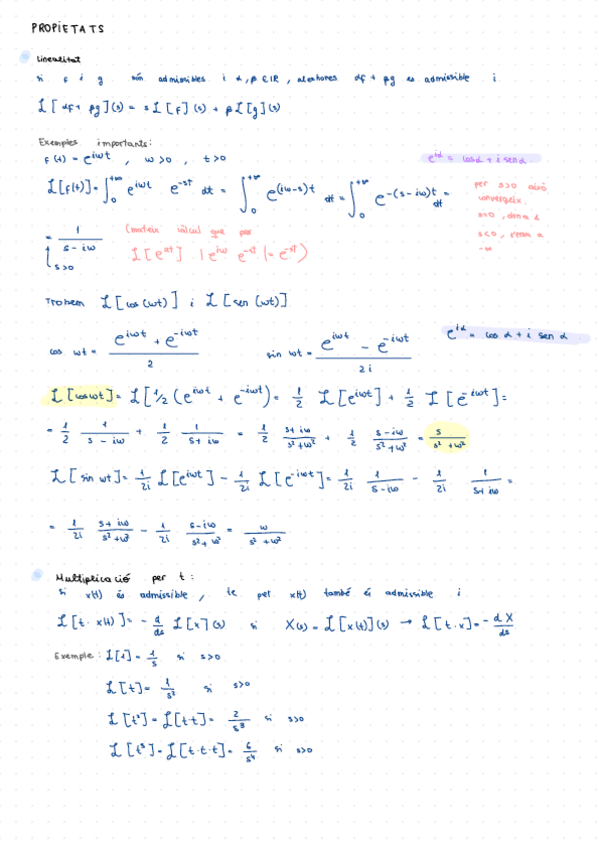 PROPIETATS
Linealitat
si f i g són admissibles i α, β ∈ ℝ, aleshores αf + βg és admissible i
ℒ[αf + βg](s) = s ℒ[f](s) + βℒ[g](s)
Exemples importants:
f(t) = e^{iωt}, ω>0, t>0
e^{iα} = cosα + i senα
ℒ[f(t)] = ∫_0^{+∞} e^{iωt} e^{-st} dt = ∫_0^{+∞} e^{(iω-s)t} dt = ∫_0^{+∞} e^{-(s-iω)t} dt =
per s>0 això
convergeix.
s=0, dóna
s<0, a
-∞
= 1/(s-iω)
s>0
(mateix càlcul que per
ℒ[e^{at}] |e^{iω} e^{-st}| = e^{-st})
Trobem ℒ[cos(ωt)] i ℒ[sen(ωt)]
cos ωt = (e^{iωt} + e^{-iωt})/2
sin ωt = (e^{iωt} - e^{-iωt})/2i
e^{iα} = cos α + i sen α
ℒ[cosωt] = ℒ[1/2 (e^{iωt} + e^{-iωt}) = 1/2 ℒ[e^{iωt}] + 1/2 ℒ[e^{-iωt}] =
= 1/2 1/(s-iω) + 1/2 1/(s+iω) = 1/2 (s+iω)/(s²+ω²) + 1/2 (s-iω)/(s²+ω²) = s/(s²+ω²)
ℒ[sin ωt] = 1/2i ℒ[e^{iωt}] - 1/2i ℒ[e^{-iωt}] = 1/2i 1/(s-iω) - 1/2i 1/(s+iω) =
= 1/2i (s+iω)/(s²+ω²) - 1/2i (s-iω)/(s²+ω²) = ω/(s²+ω²)
Multiplicació per t:
si x(t) és admissible, te per x(t) també és admissible i
ℒ[t·x(t)] = - d/ds ℒ[x](s) si X(s) = ℒ[x(t)](s) → ℒ[t·x] = - dX/ds
Exemple: ℒ[1] = 1/s si s>0
ℒ[t] = 1/s² si s>0
ℒ[t²] = ℒ[t·t] = 2/s³ si s>0
ℒ[t³] = ℒ[t·t·t] = 6/s⁴ si s>0